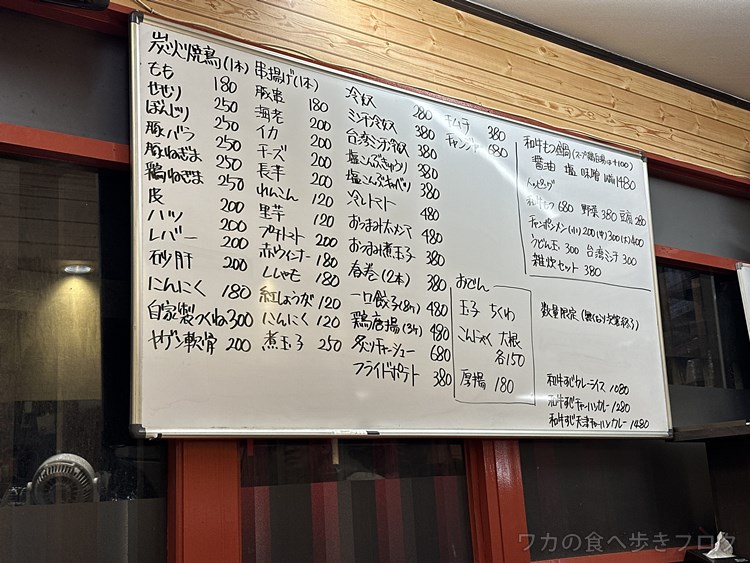 炭火焼鳥(1本)
もも 180
せせり 250
ぼんじり 250
豚バラ 250
豚ねぎま 250
鶏ねぎま 250
皮 200
ハツ 200
レバー 200
砂肝 200
にんにく 180
自家製つくね 300
ヤゲン軟骨 200
串揚げ(1本)
豚串 180
海老 200
イカ 200
チーズ 200
長芋 200
れんこん 120
里芋 120
プチトマト 200
赤ウィンナー 180
ししゃも 180
紅しょうが 120
にんにく 120
煮玉子 250
冷奴 280
ミンチ冷奴 380
台湾ミンチ冷奴 380
塩こんぶきゅうり 380
塩こんぶキャベツ 380
冷しトマト 480
おつまみメンマ 480
おつまみ煮玉子 380
春巻(2本) 380
一口餃子(8ケ) 480
鶏唐揚(3ケ) 480
炙りチャーシュー 680
フライドポテト 380
キムチ 380
チャンジャ 680
おでん
玉子 ちくわ
こんにゃく 大根
各150
厚揚 180
和牛もつ鍋(スープ +100)
醤油 塩 味噌 1480
トッピング
和牛もつ 680 野菜 380 豆腐 280
チャンポンメン(小)200(中)300(大)400
うどん玉 300 台湾ミンチ 300
雑炊セット 380
数量限定(無くなり次第終了)
和牛すじカレーライス 1080
和牛すじチャーハンカレー 1280
和牛すじ天津チャーハンカレー 1480
ワカの食べ歩きブログ